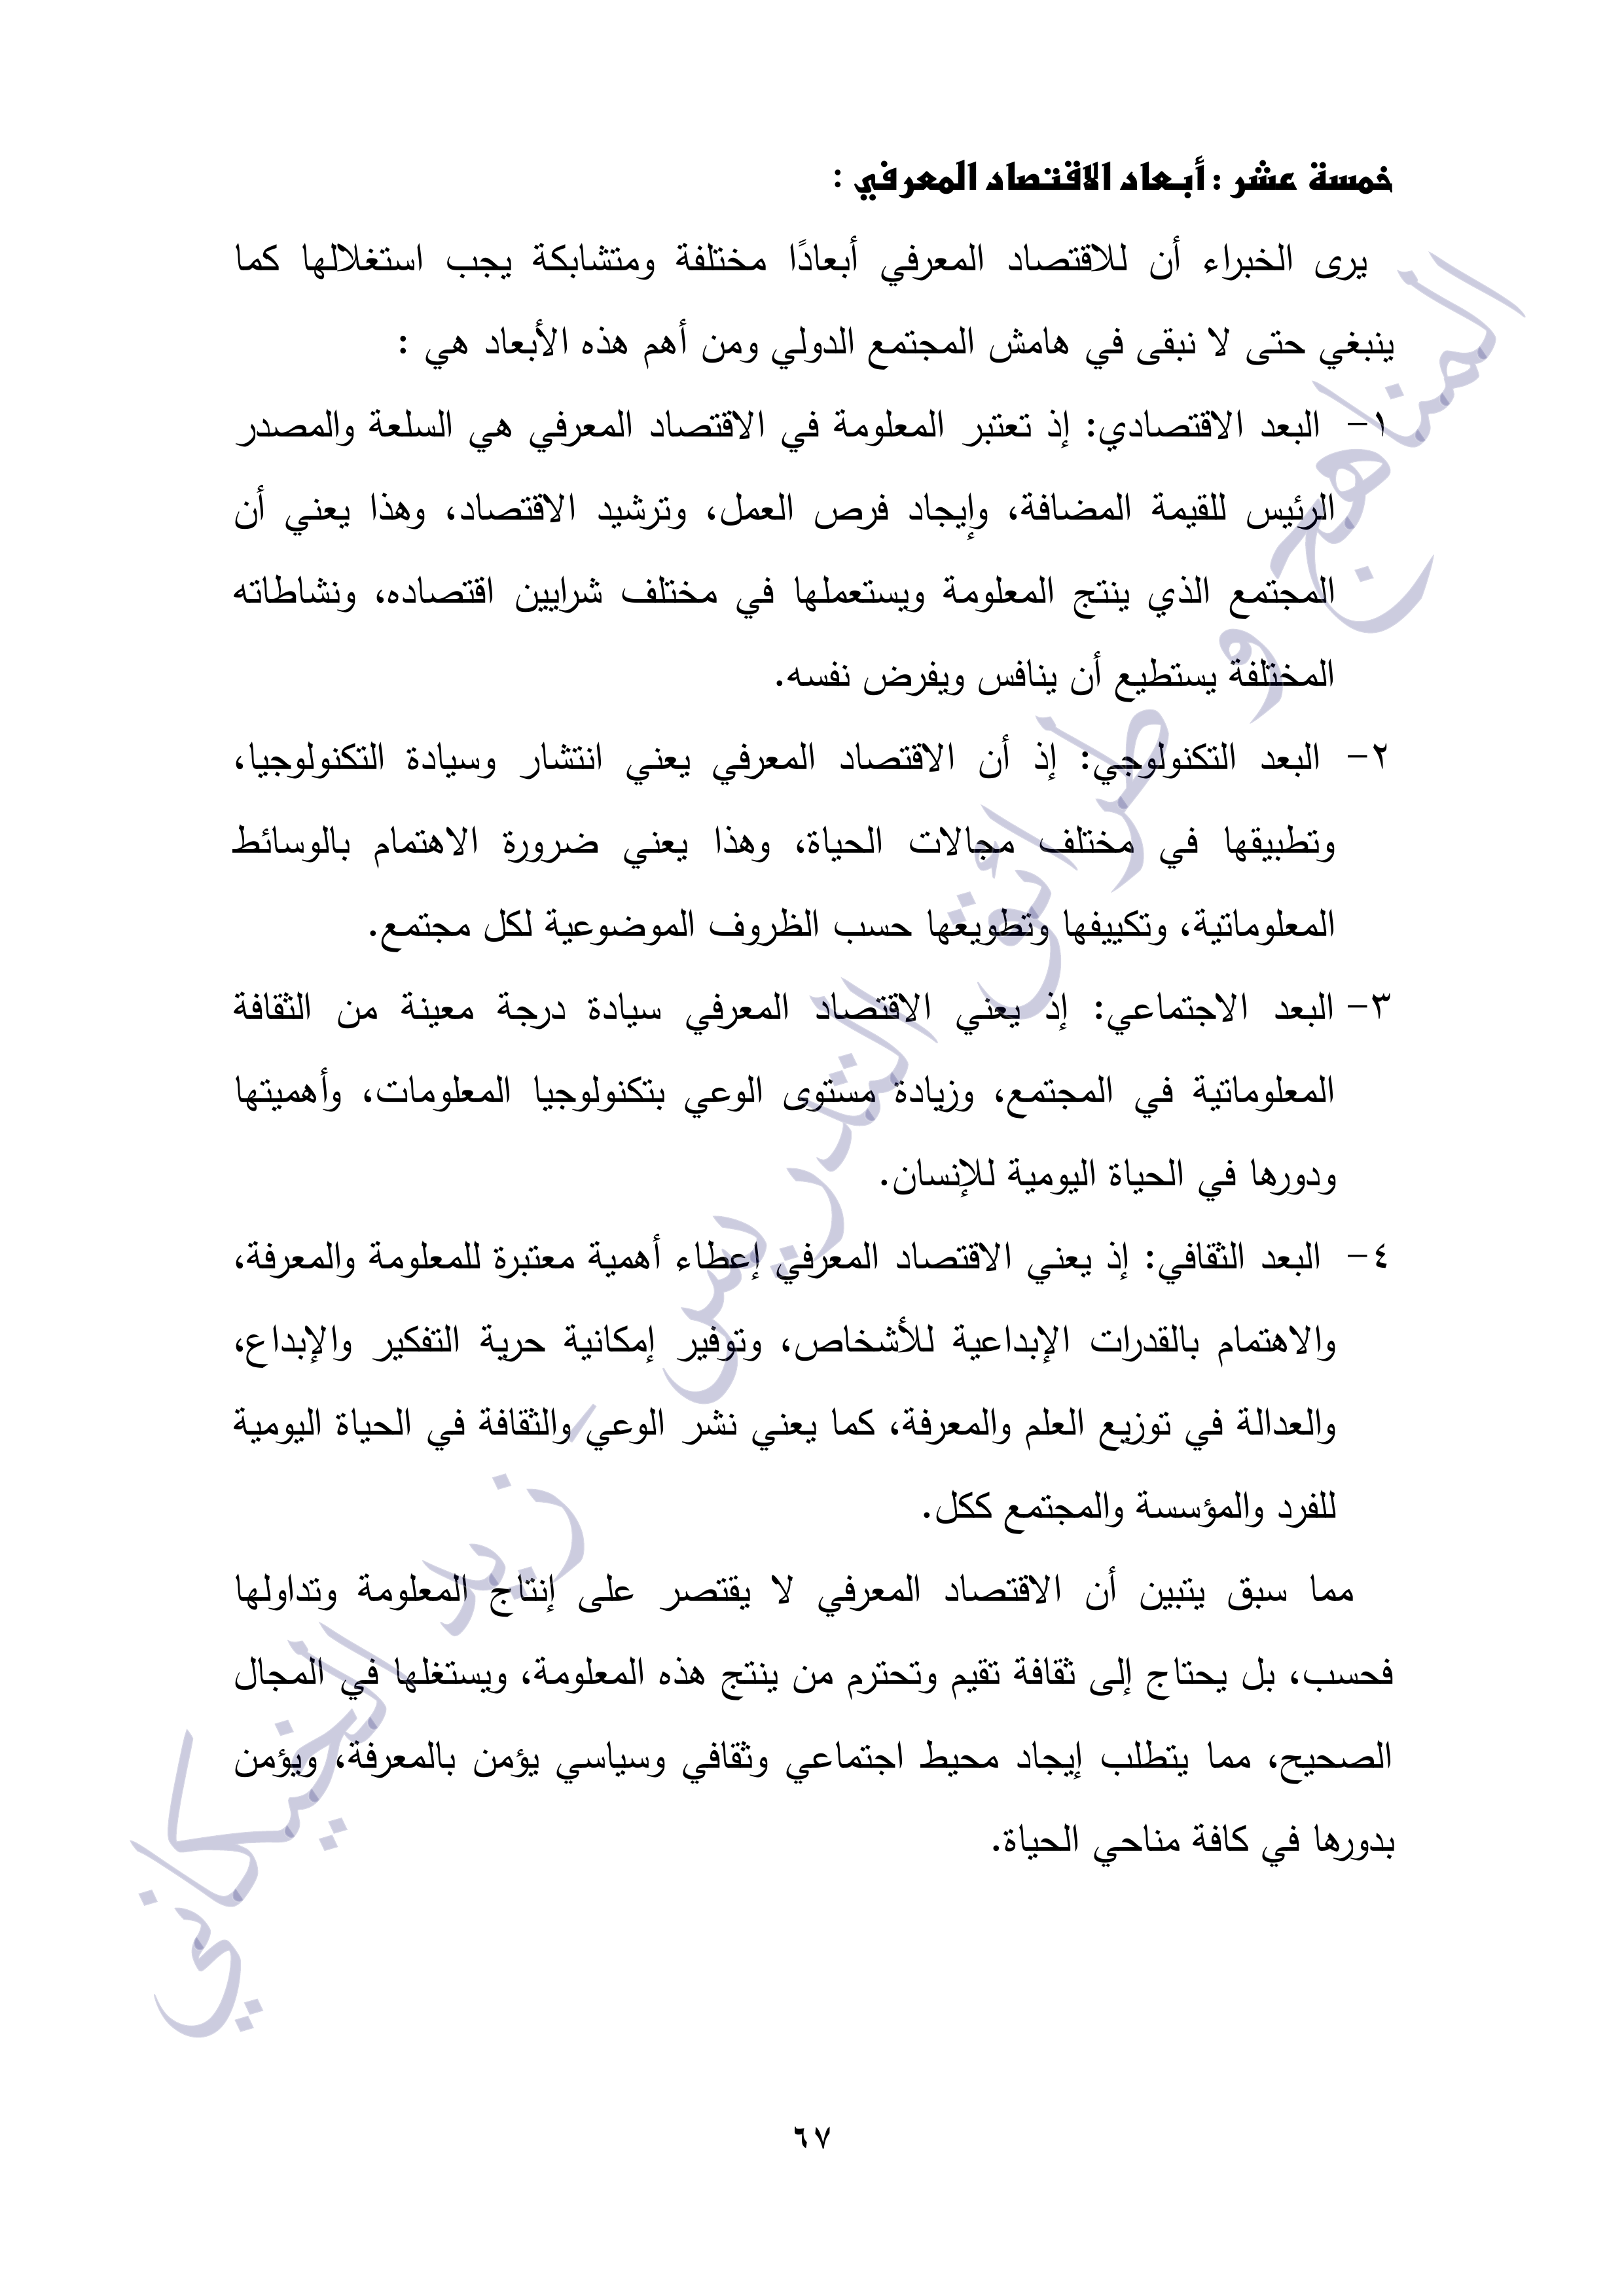 خمسة عشر : أبعاد الاقتصاد المعرفي :
يرى الخبراء أن للاقتصاد المعرفي أبعادًا مختلفة ومتشابكة يجب استغلالها كما
ينبغي حتى لا نبقى في هامش المجتمع الدولي ومن أهم هذه الأبعاد هي :
١- البعد الاقتصادي: إذ تعتبر المعلومة في الاقتصاد المعرفي هي السلعة والمصدر
الرئيس للقيمة المضافة، وإيجاد فرص العمل، وترشيد الاقتصاد، وهذا يعني أن
المجتمع الذي ينتج المعلومة ويستعملها في مختلف شرايين اقتصاده، ونشاطاته
المختلفة يستطيع أن ينافس ويفرض نفسه.
٢- البعد التكنولوجي: إذ أن الاقتصاد المعرفي يعني انتشار وسيادة التكنولوجيا،
وتطبيقها في مختلف مجالات الحياة، وهذا يعني ضرورة الاهتمام بالوسائط
المعلوماتية، وتكييفها وتطويعها حسب الظروف الموضوعية لكل مجتمع.
٣- البعد الاجتماعي: إذ يعني الاقتصاد المعرفي سيادة درجة معينة من الثقافة
المعلوماتية في المجتمع، وزيادة مستوى الوعي بتكنولوجيا المعلومات، وأهميتها
ودورها في الحياة اليومية للإنسان.
٤- البعد الثقافي: إذ يعني الاقتصاد المعرفي إعطاء أهمية معتبرة للمعلومة والمعرفة،
والاهتمام بالقدرات الإبداعية للأشخاص، وتوفير إمكانية حرية التفكير والإبداع،
والعدالة في توزيع العلم والمعرفة، كما يعني نشر الوعي والثقافة في الحياة اليومية
للفرد والمؤسسة والمجتمع ككل.
مما سبق يتبين أن الاقتصاد المعرفي لا يقتصر على إنتاج المعلومة وتداولها
فحسب، بل يحتاج إلى ثقافة تقيم وتحترم من ينتج هذه المعلومة، ويستغلها في المجال
الصحيح، مما يتطلب إيجاد محيط اجتماعي وثقافي وسياسي يؤمن بالمعرفة، ويؤمن
بدورها في كافة مناحي الحياة.
المناهج و طرائق التدريس - زيد الخيكاني
٦٧